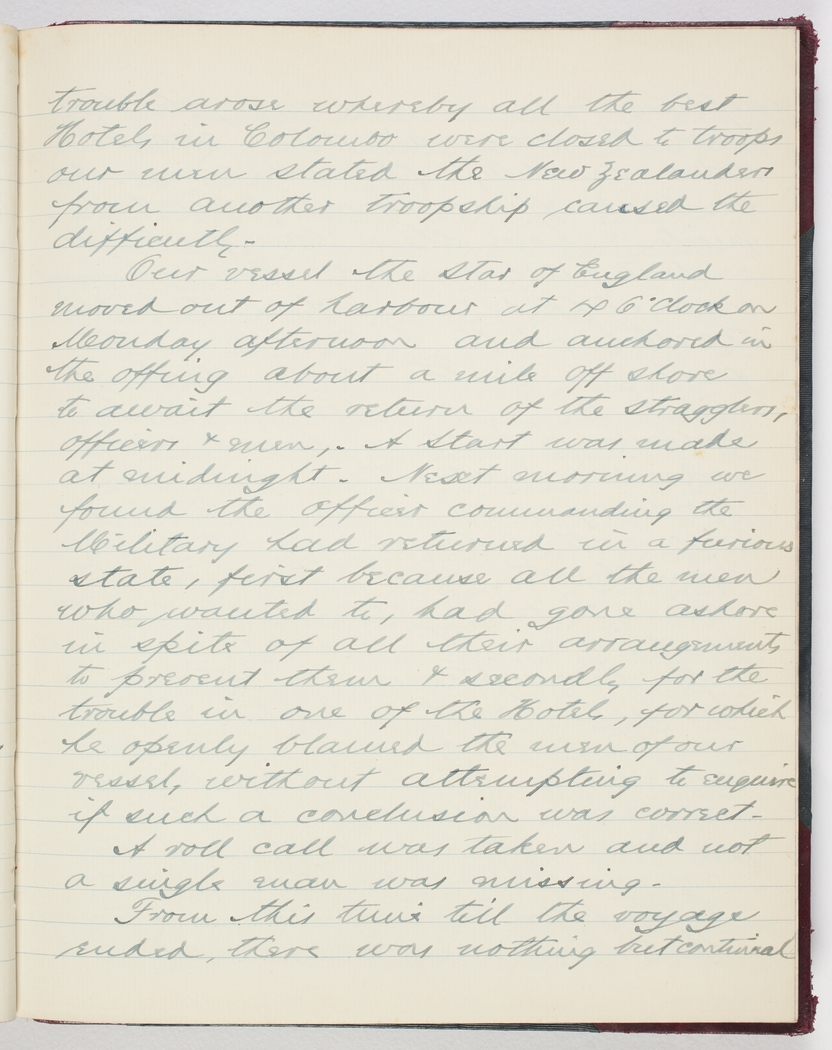 trouble arose whereby all the best
Hotels in Colombo were closed to troops
our men stated the New Zealanders
from another troopship caused the
difficulty-
Our vessel the Star of England
moved out of harbour at 4 O'Clock on
Monday afternoon and anchored in
the offing about a mile off shore
to await the return of the stragglers,
officers & men,. A start was made
at midnight. Next morning we
found the officer commanding the
Military had returned in a furious
state, first because all the men
who wanted to, had gone ashore
in spite of all their arrangements
to prevent them & secondly for the
trouble in one of the Hotels, for which
he openly blamed the men of our
vessel, without attempting to enquire
if such a conclusion was correct-
A roll call was taken and not
a single man was missing-
From this time till the voyage
ended, there was nothing but continual